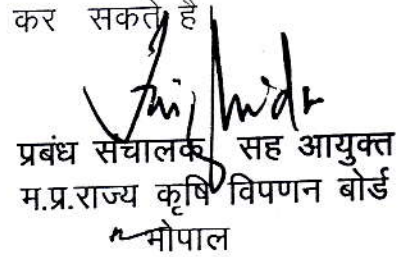 कर सकते है
प्रबंध संचालक सह आयुक्त
म.प्र.राज्य कृषि विपणन बोर्ड
भोपाल